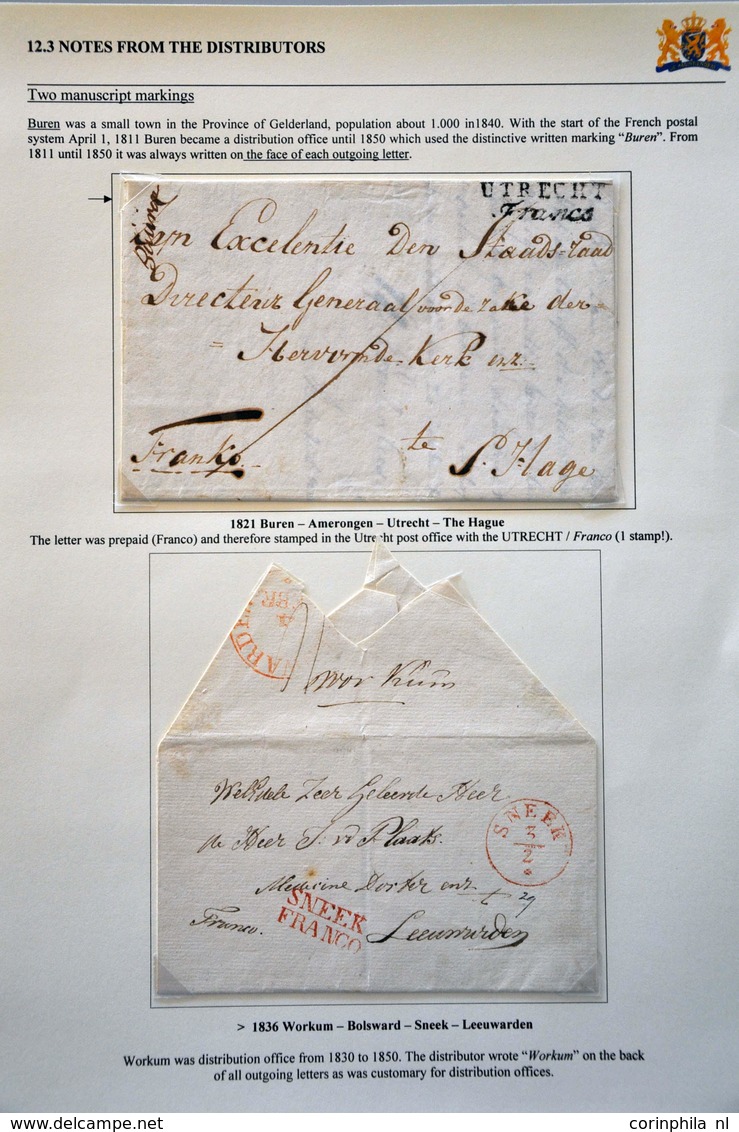 12.3 NOTES FROM THE DISTRIBUTORS
Two manuscript markings
Buren was a small town in the Province of Gelderland, population about 1.000 in1840. With the start of the French postal
system April 1, 1811 Buren became a distribution office until 1850 which used the distinctive written marking “Buren”. From
1811 until 1850 it was always written on the face of each outgoing letter.
UTRECHT
Franco
Excelentie Den Staads=raad
Directeur Generaal voor de zake der=
= Hervormde Kerk enz.
Franko.
te S. Hage
1821 Buren – Amerongen – Utrecht – The Hague
The letter was prepaid (Franco) and therefore stamped in the Utrecht post office with the UTRECHT / Franco (1 stamp!).
Workum
WelEdele Zeer Geleerde Heer
de Heer S. vd Plaats.
SNEEK
3
2
Medicine Docter enz.
SNEEK
FRANCO
Franco.
Leeuwarden
> 1836 Workum – Bolsward – Sneek – Leeuwarden
Workum was distribution office from 1830 to 1850. The distributor wrote “Workum” on the back
of all outgoing letters as was customary for distribution offices.
corinphila nl